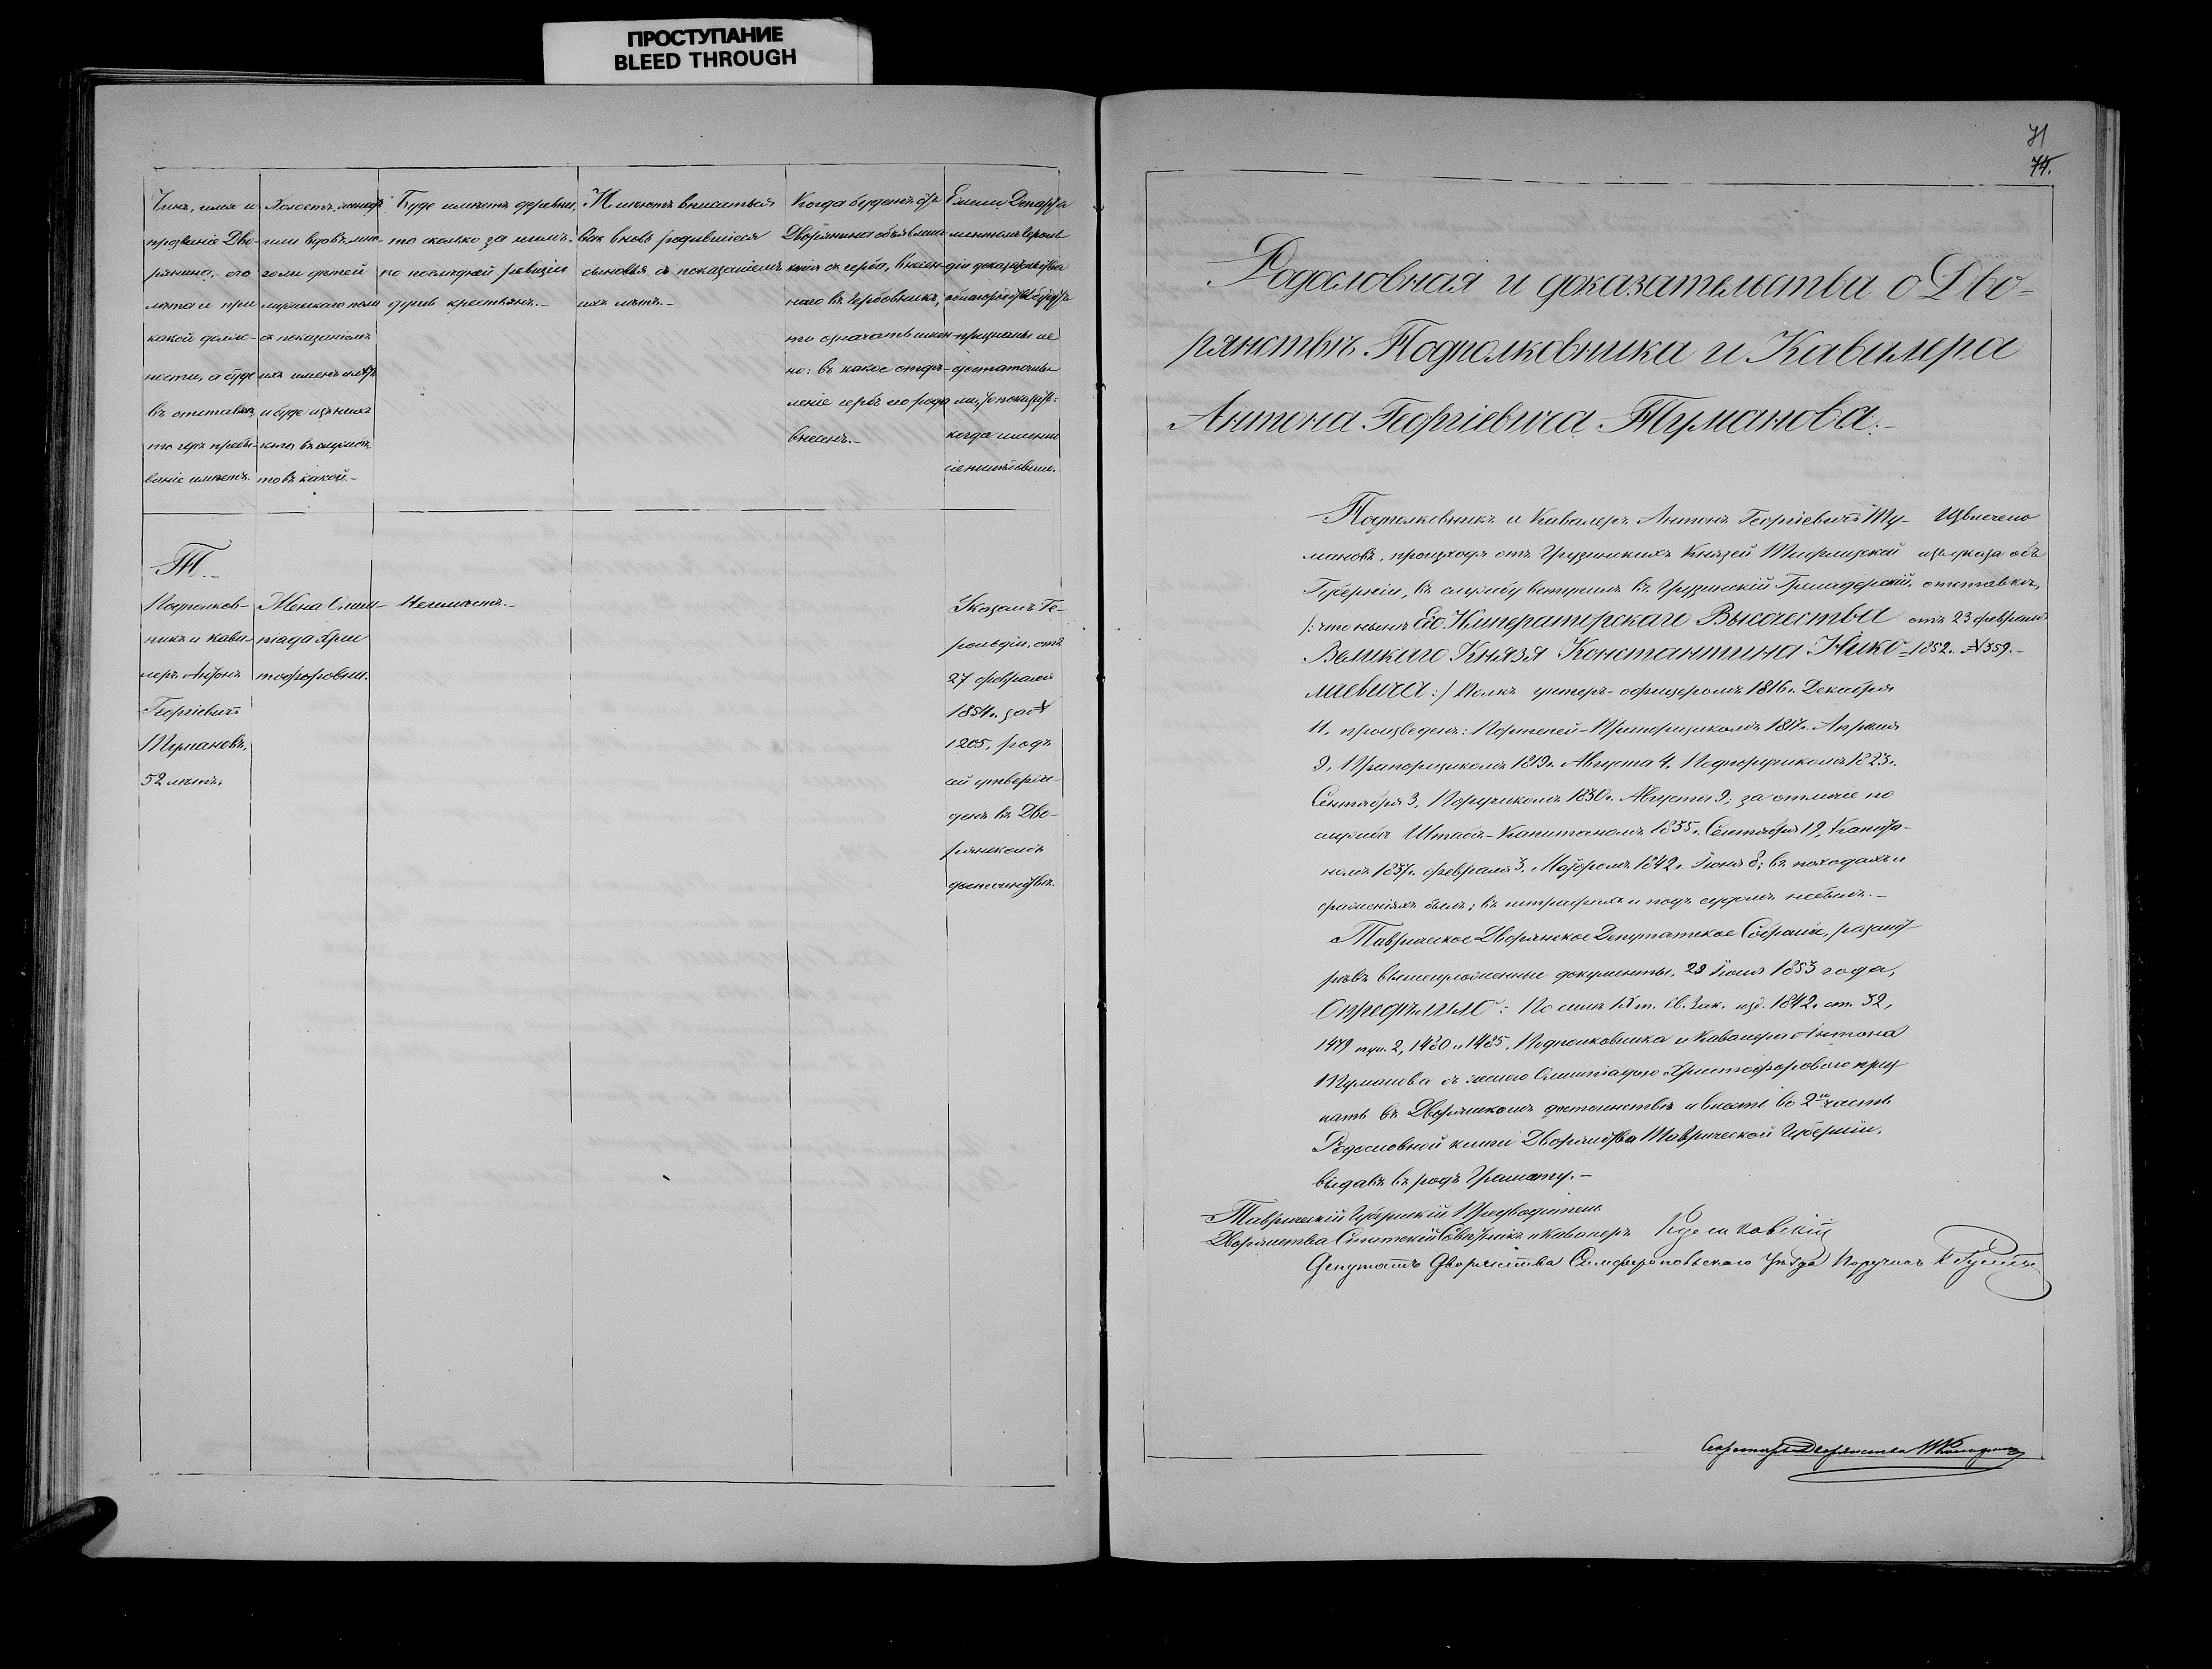 ПРОСТУПАНИЕ
BLEED THROUGH
Чинъ, имя и
прозваніе Дво-
рянина, его
лѣта и при
какой долж-
ности, а буде
въ отставкѣ,
то гдѣ пребы-
ваніе имѣетъ.
Холостъ, женатъ
или вдовъ, мно-
голи дѣтей
мужескаго пола
съ показаніемъ
ихъ именъ и лѣтъ
и буде изъ нихъ
кто въ службѣ,
то въ какой.-
Буде имѣетъ деревни,
то сколько за нимъ,
по послѣдней ревизіи
душъ крестьянъ.-
Имѣютъ вписаться
вновь родившіеся
сыновья съ показаніемъ
ихъ лѣтъ.-
Когда будетъ отъ
Дворянина объявлена
копія съ герба, внесен-
наго въ Гербовникъ,
то означать имен-
но: въ какое отдѣ-
леніе гербъ его рода
внесенъ.-
Ежели Департа
ментомъ Героль
діи доказательства
о благородствѣ будутъ
признаны не
достаточны
ми, то показать:
когда именно
сіе послѣдовало.
Т.-
Подполков-
никъ и Кава-
леръ Антонъ
Георгіевичъ
Тумановъ,
52 лѣтъ.
Жена Олим-
піада Хри
стофоровна.
Неимѣетъ.-
Указомъ Ге-
рольдіи, отъ
27 февраля
1854 г. за №
1205, родъ
сей утверж-
денъ въ Дво-
рянскомъ
достоинствѣ.
71
74.
Родословная и доказательства о Дво-
рянствѣ Подполковника и Кавалера
Антона Георгіевича Туманова.-
Подполковникъ и Кавалеръ Антонъ Георгіевичъ Ту-
мановъ, происходя отъ Грузинскихъ Князей Тифлизской
Губерніи, въ службу вступилъ въ Грузинскій Гренадерскій,
/: что нынѣ Его Императорскаго Высочества
Великаго Князя Константина Нико-
лаевича :/ Полкъ унтеръ-офицеромъ 1816 г. Декабря
11, произведенъ: Портепей-Прапорщикомъ 1817 г. Апрѣля
9, Прапорщикомъ 1819 г. Августа 4, Подпоручикомъ 1823 г.
Сентября 3, Поручикомъ 1830 г. Августа 9, за отличіе по
службѣ Штабсъ-Капитаномъ 1835 г. Сентября 19, Капита-
номъ 1837 г. февраля 3, Маіоромъ 1842 г. Іюня 8; въ походахъ и
сраженіяхъ былъ; въ штрафахъ и подъ судомъ небылъ.-
Извлечено
изъ указа объ
отставкѣ,
отъ 23 февраля
1852 г. № 359.-
Таврическое Дворянское Депутатское Собраніе, разсмот
рѣвъ вышеизложенные документы, 29 Іюля 1853 года,
Опредѣлило: По силѣ IX т. Св. Зак. изд. 1842 г. ст. 32,
1479 пун. 2, 1480 и 1485, Подполковника и Кавалера Антона
Туманова съ женою Олимпіадою Христофоровою приз
нать въ Дворянскомъ достоинствѣ и внести во 2ю часть
Родословной книги Дворянства Таврической Губерніи,
выдавъ въ родъ Грамоту.-
Таврическій Губернскій Предводитель
Дворянства Статскій Совѣтникъ и Кавалеръ
Депутатъ Дворянства Симферопольскаго Уѣзда Поручикъ
Секретарь Дворянства